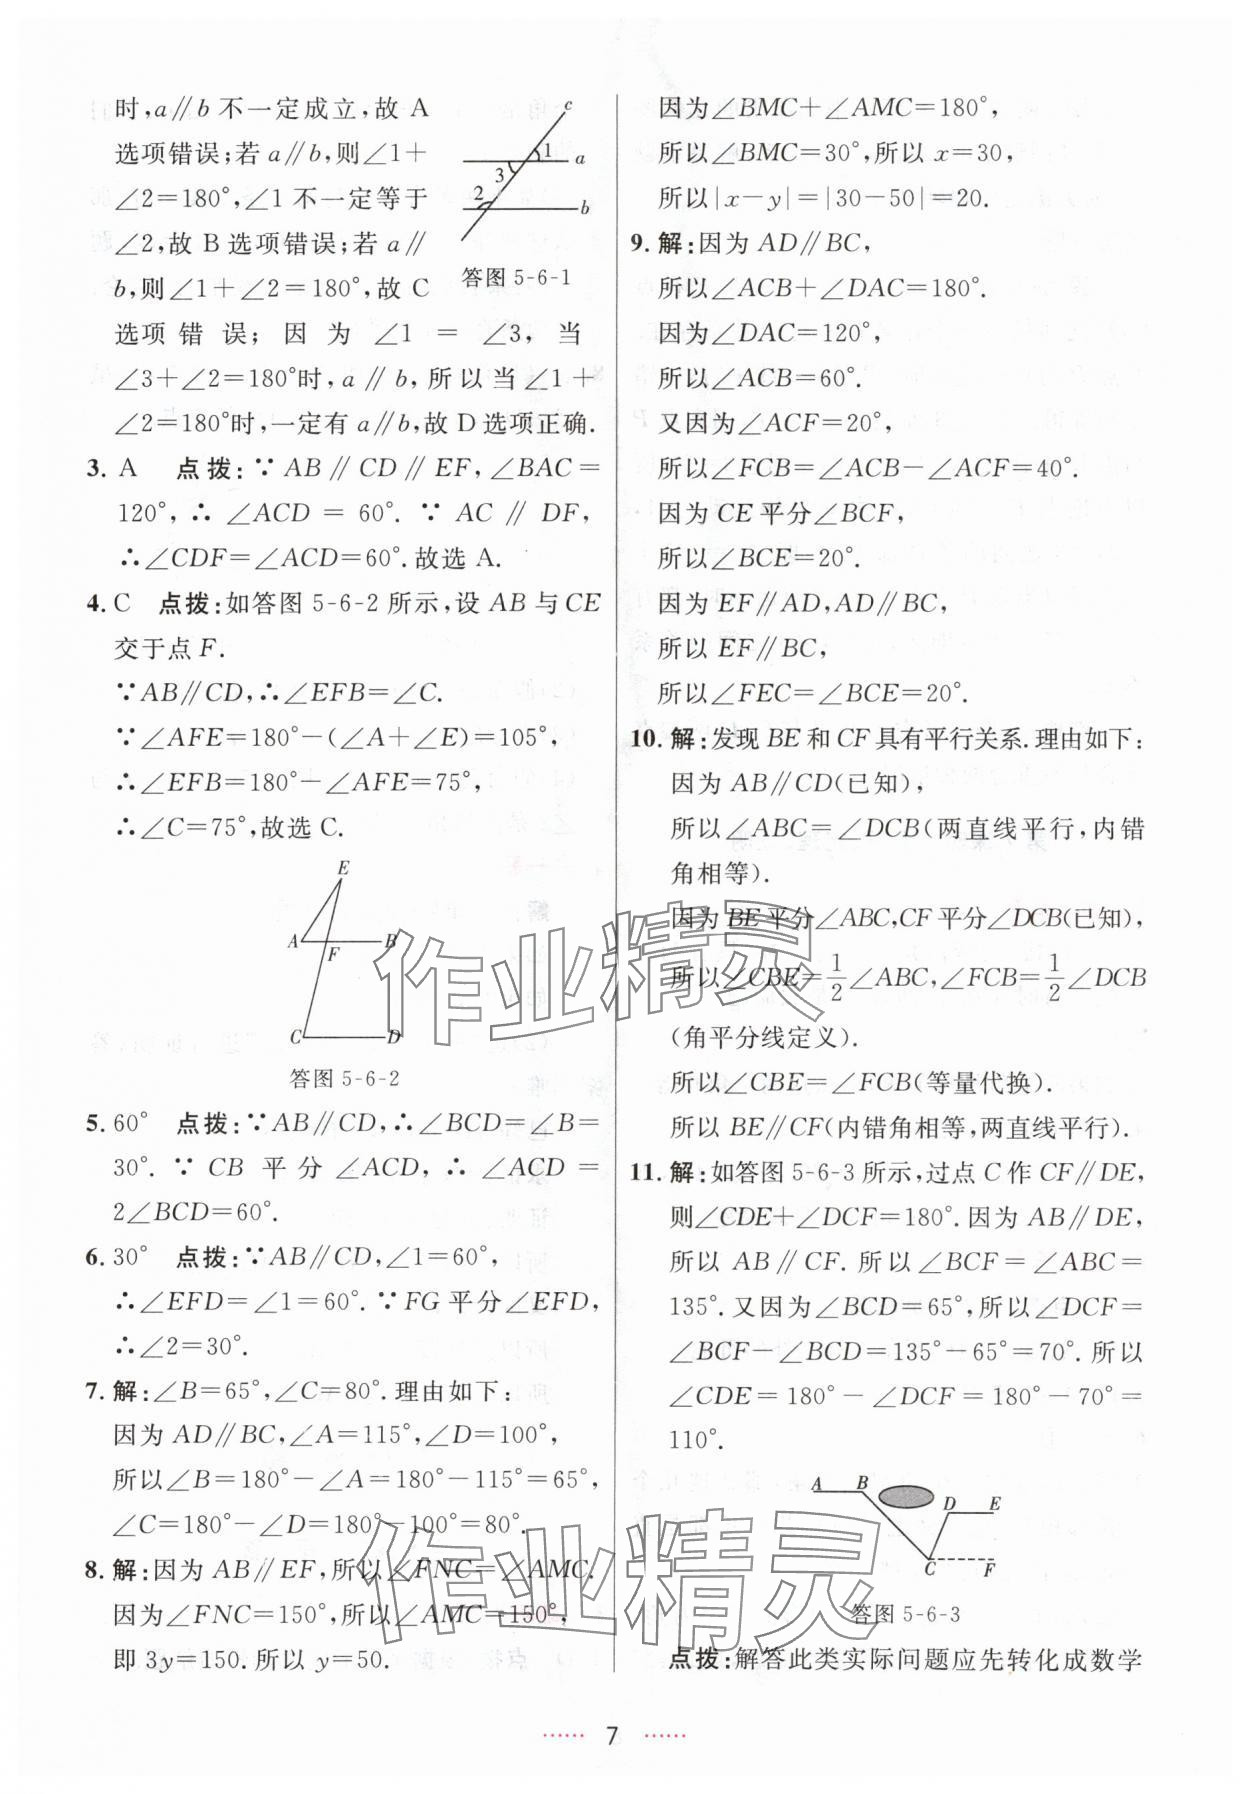 时,a∥b 不一定成立,故 A
选项错误;若 a∥b,则∠1+
∠2=180°,∠1 不一定等于
∠2,故 B 选项错误;若 a∥
b,则∠1+∠2=180°,故 C
选项错误;因为∠1=∠3,当
∠3+∠2=180°时,a∥b,所以当∠1+
∠2=180°时,一定有 a∥b,故 D 选项正确.
c
1
a
3
2
b
答图 5-6-1
3. A 点拨:∵AB∥CD∥EF,∠BAC=
120°,∴∠ACD=60°.∵AC∥DF,
∴∠CDF=∠ACD=60°.故选 A.
4. C 点拨:如答图 5-6-2 所示,设 AB 与 CE
交于点 F.
∵AB∥CD,∴∠EFB=∠C.
∵∠AFE=180°-(∠A+∠E)=105°,
∴∠EFB=180°-∠AFE=75°,
∴∠C=75°,故选 C.
E
A
F
B
C
D
答图 5-6-2
5. 60° 点拨:∵AB∥CD,∴∠BCD=∠B=
30°.∵CB 平分∠ACD,∴∠ACD=
2∠BCD=60°.
6. 30° 点拨:∵AB∥CD,∠1=60°,
∴∠EFD=∠1=60°.∵FG 平分∠EFD,
∴∠2=30°.
7. 解:∠B=65°,∠C=80°.理由如下:
因为 AD∥BC,∠A=115°,∠D=100°,
所以∠B=180°-∠A=180°-115°=65°,
∠C=180°-∠D=180°-100°=80°.
8. 解:因为 AB∥EF,所以∠FNC=∠AMC.
因为∠FNC=150°,所以∠AMC=150°,
即 3y=150.所以 y=50.
因为∠BMC+∠AMC=180°,
所以∠BMC=30°,所以 x=30,
所以|x-y|=|30-50|=20.
9. 解:因为 AD∥BC,
所以∠ACB+∠DAC=180°.
因为∠DAC=120°,
所以∠ACB=60°.
又因为∠ACF=20°,
所以∠FCB=∠ACB-∠ACF=40°.
因为 CE 平分∠BCF,
所以∠BCE=20°.
因为 EF∥AD,AD∥BC,
所以 EF∥BC,
所以∠FEC=∠BCE=20°.
10. 解:发现 BE 和 CF 具有平行关系.理由如下:
因为 AB∥CD(已知),
所以∠ABC=∠DCB(两直线平行,内错
角相等).
因为 BE 平分∠ABC,CF 平分∠DCB(已知),
所以∠CBE=1/2∠ABC,∠FCB=1/2∠DCB
(角平分线定义).
所以∠CBE=∠FCB(等量代换).
所以 BE∥CF(内错角相等,两直线平行).
11. 解:如答图 5-6-3 所示,过点 C 作 CF∥DE,
则∠CDE+∠DCF=180°.因为 AB∥DE,
所以 AB∥CF.所以∠BCF=∠ABC=
135°.又因为∠BCD=65°,所以∠DCF=
∠BCF-∠BCD=135°-65°=70°.所以
∠CDE=180°-∠DCF=180°-70°=
110°.
A
B
D
E
C
F
答图 5-6-3
点拨:解答此类实际问题应先转化成数学
作业精灵
作业精灵
…… 7 ……